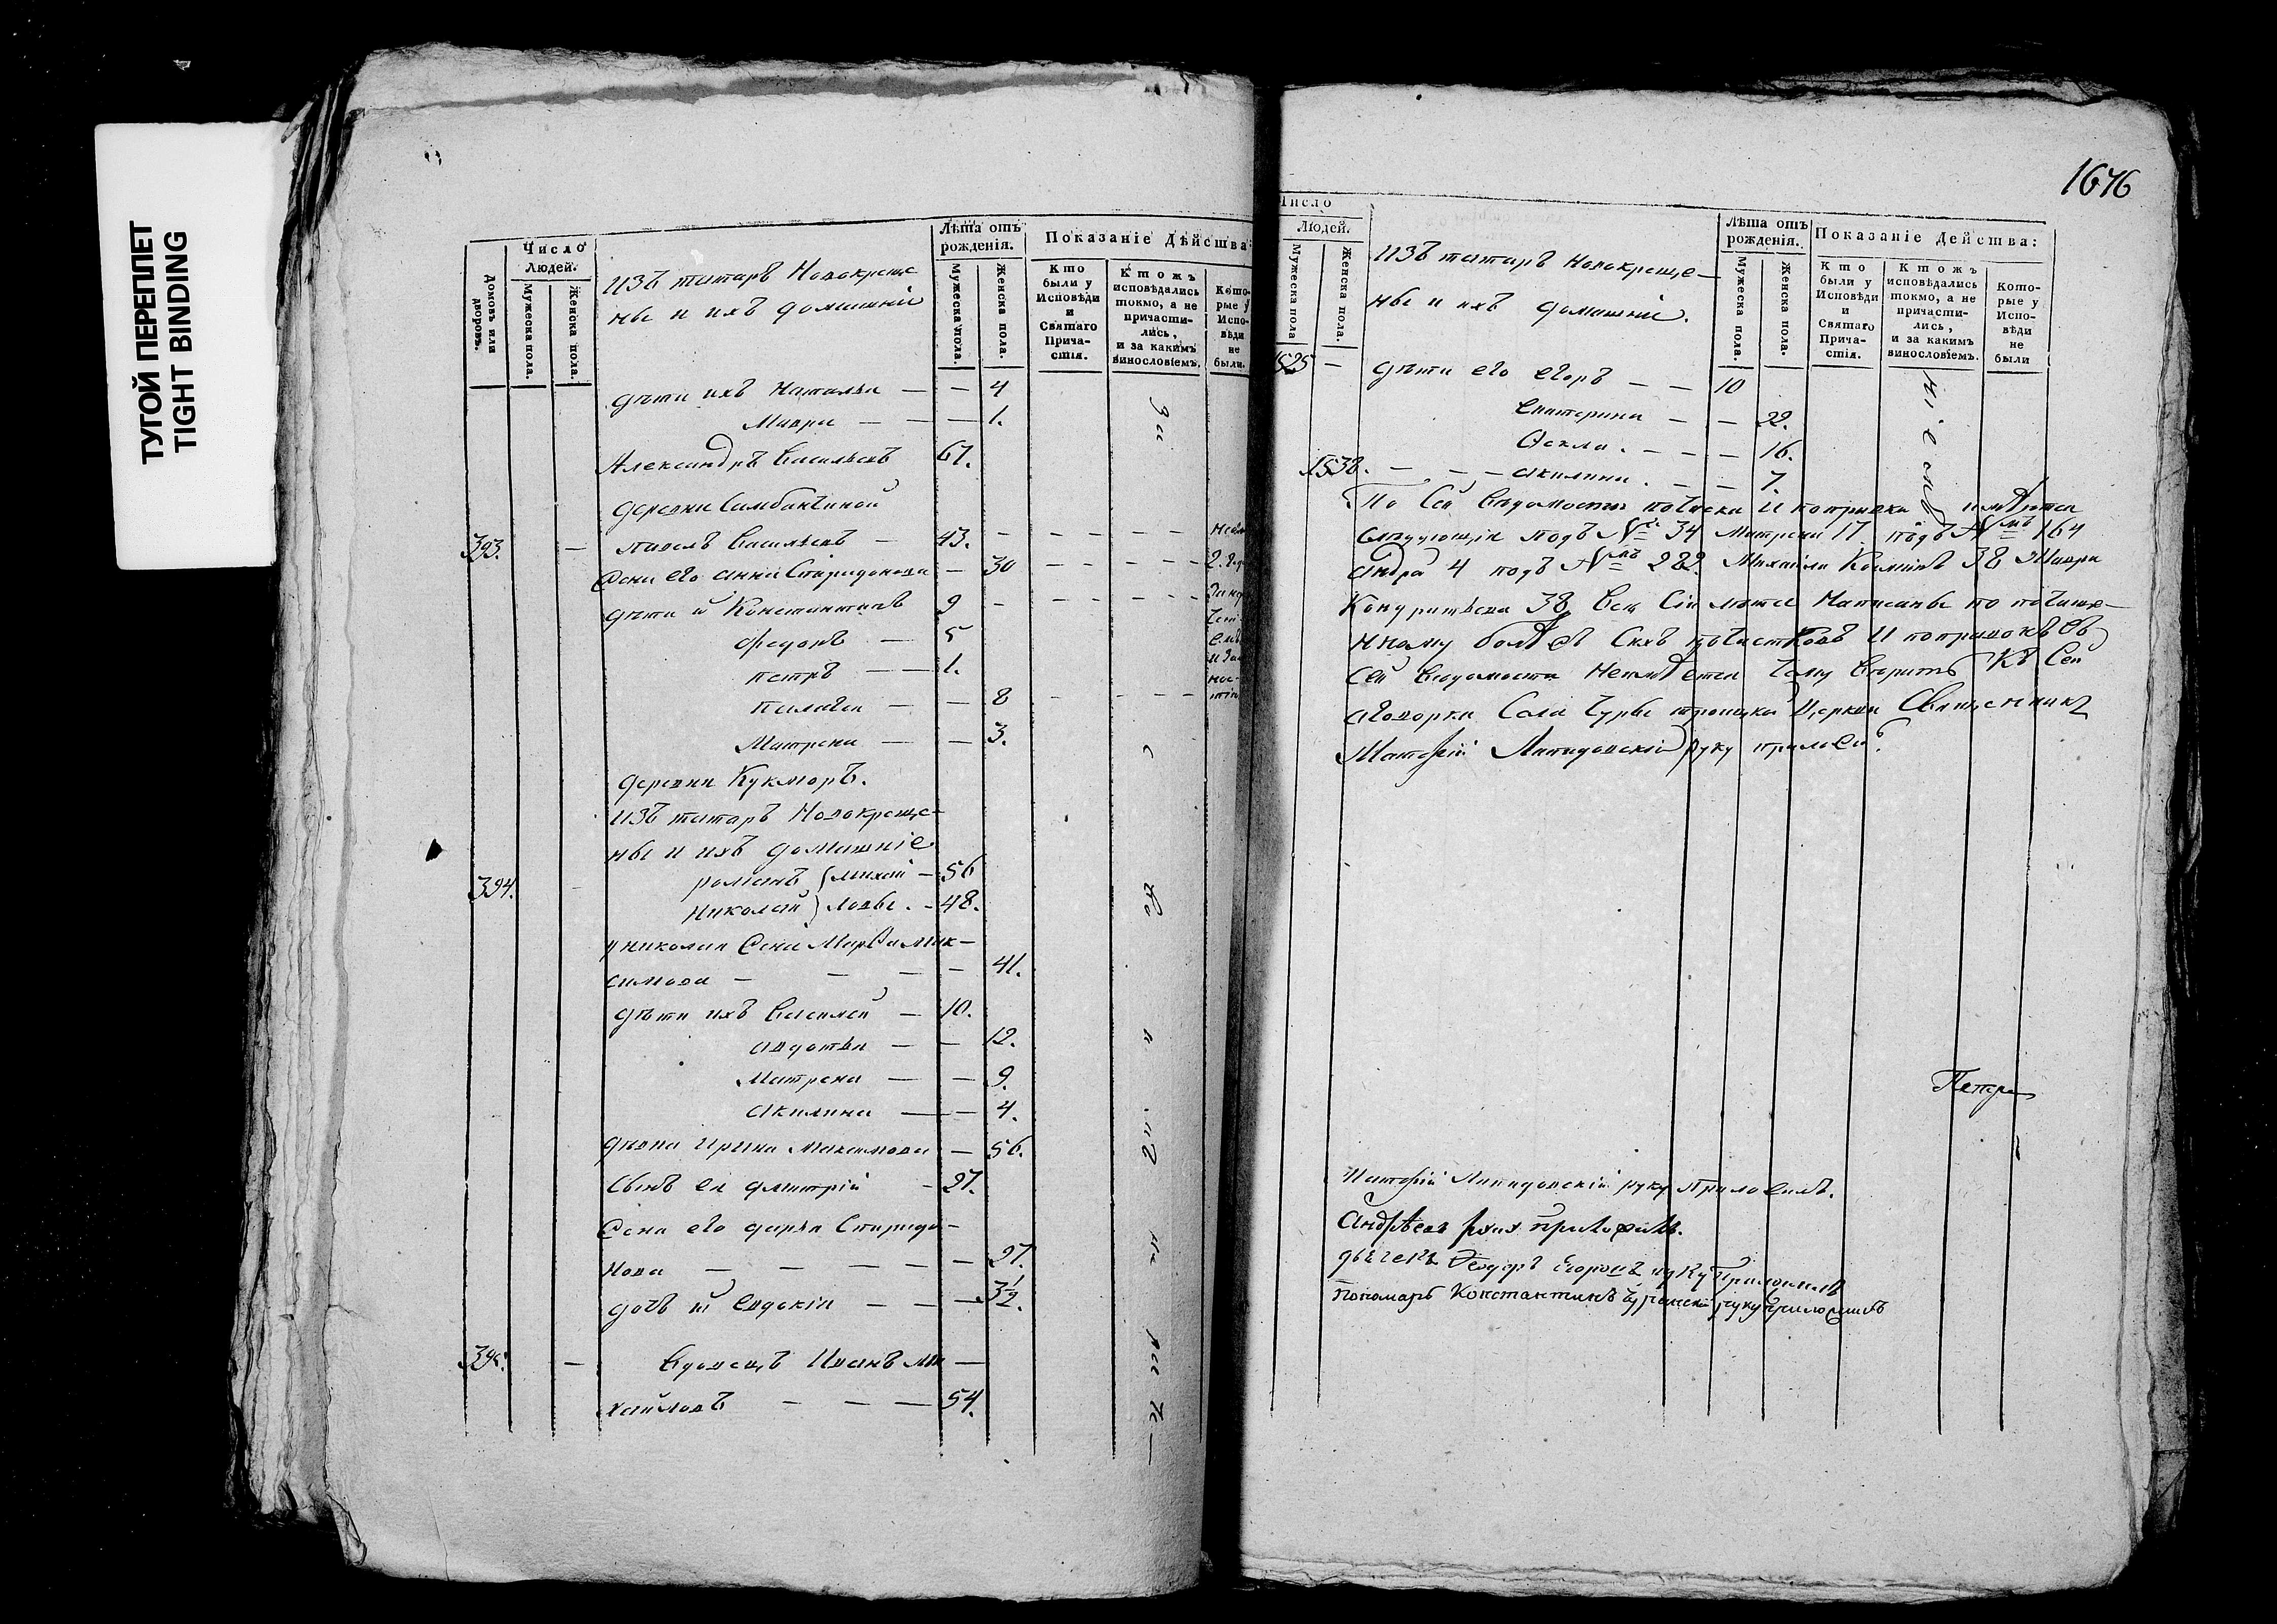 ТУГОЙ ПЕРЕПЛЕТ
TIGHT BINDING
Домовъ или дворовъ.
Число Людей.
Мужеска пола.
Женска пола.
изъ татаръ Новокреще
ны и ихъ домашніе
Лѣта отъ рожденія.
Мужеска пола.
Женска пола.
Показаніе Дѣйства:
Кто были у Исповѣди и Святаго Прича-стія.
Ктожъ исповѣдались токмо, а не причасти-лись, и за какимъ винословіемъ.
Кото-рые у Испо-вѣди не были.
дѣти ихъ Наталья — — 4
Мавра — — — 1.
Александръ Васильевъ 67.
деревни Самбактиной
393. — Павелъ Васильевъ — 43.
Жена его Анна Спиридонова — 30
дѣти и Константинъ 9 —
Федоръ — 5
петръ — — 1.
Палагея — — 8
Матрена — — 3.
деревни Кукморъ.
изъ татаръ Новокреще-
ны и ихъ домашніе
394. романъ (михай — 56
Николай) ловы. — 48.
у николая Жена Марва Мак—
симова — — — — 41.
дѣти ихъ Василей — 10.
авдотья — — 12.
Матрена — — 9.
Акилина — — 4.
дѣвка Ирина Максимова — 56.
Сынъ ея дмитрій — 27.
Жена его дарья Спиридо—
нова — — — — — 27.
дочь и Евдокія — — — 3½.
395. — Вдовецъ Иванъ ми —
хайловъ — — — 54.
1646
Число
Людей.
Мужеска пола
Женска пола.
изъ татаръ Новокреще—
ны и ихъ домашніе.
Лѣта отъ рожденія.
Мужеска пола.
Женска пола.
Показаніе Действа:
Кто были у Исповѣди и Святаго Прича-стія.
Ктожъ исповѣдались токмо, а не причасти-лись, и за какимъ винословіемъ.
Кото-рые у Испо-вѣди не были
1525 — дѣти его егоръ — — 10
Екатерина — — 22.
Фекла. — — — 16.
1538. — — — Акилина. — — 7.
По Сей Ведомости почиски и поправки имѣются
слѣдующія подъ № 34 Матрена 17 подъ № 164
Андрей 4 подъ № 282. Михайла 38 Мавра
Кондратьева 38 Все Сіи лѣта Написаны по почище—
нному болѣе Сихъ почистковъ и поправокъ въ
Сей Ведомости Неимѣется Чему верить Къ Сей
Села Чуры троицкой Церкви Священникъ
Матфій Лапидовскій руку приложилъ.
Петръ
Матфій Лапидовскій руку Приложилъ.
Андрѣевъ руку приложилъ.
дьячекъ Феодоръ Егоровъ руку Приложилъ
Пономарь Константинъ Чуринскій руку Приложилъ